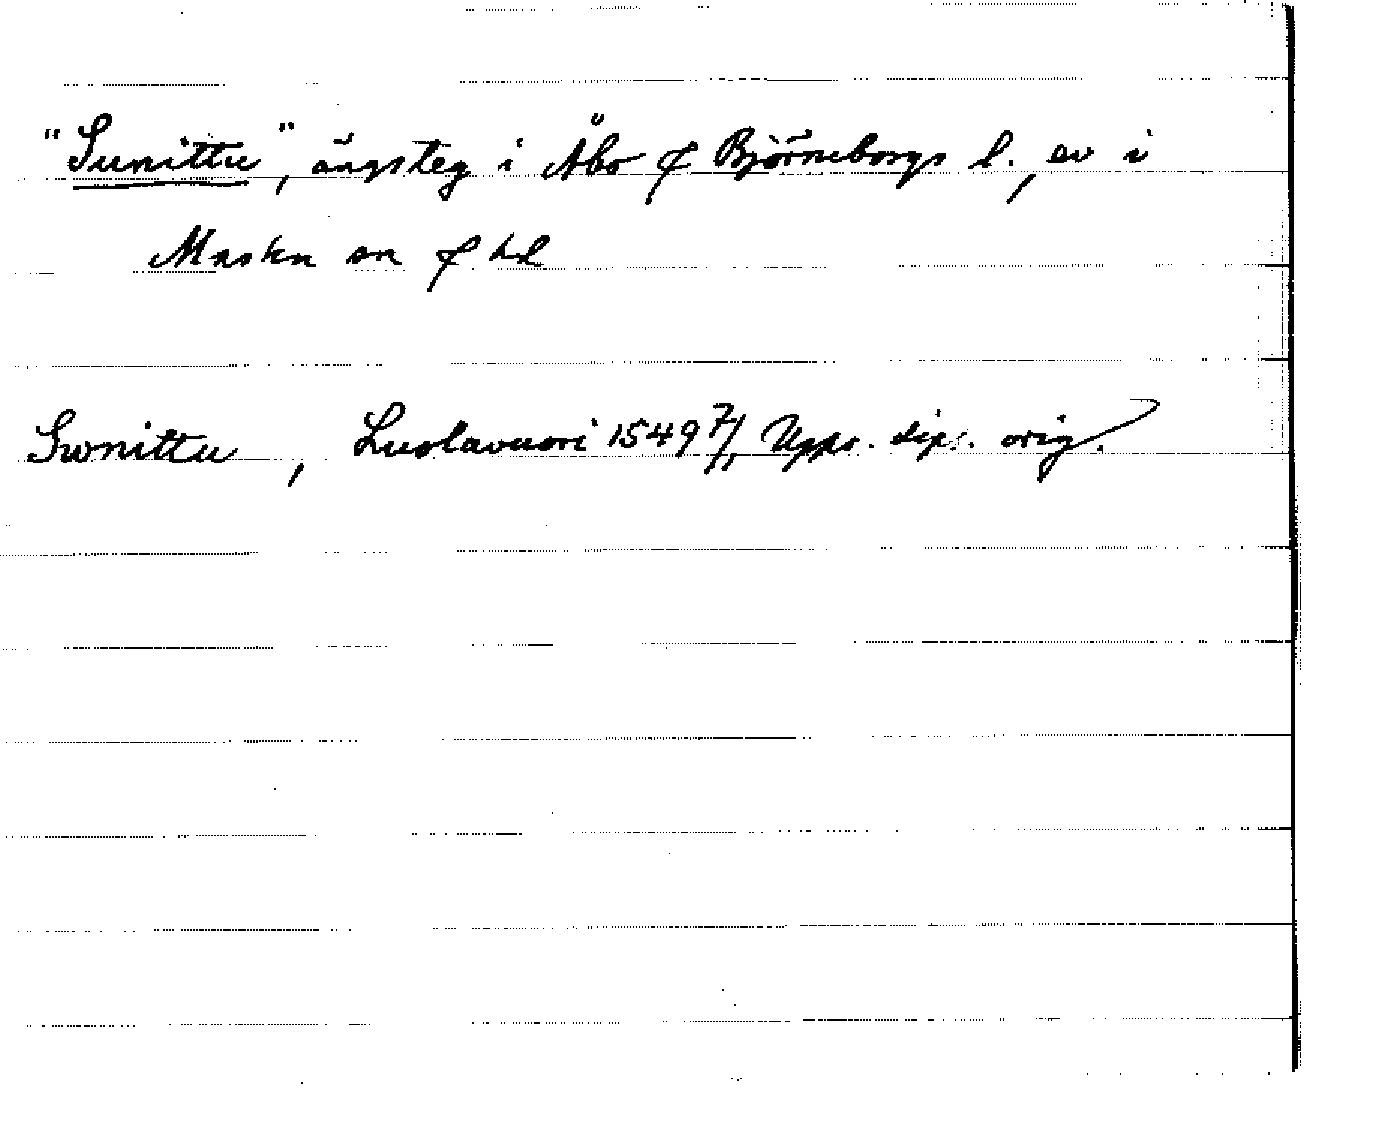 "Sunittu", ängsteg i Åbo o Björneborgs l., ev i
Masku sn o hd
Swnittu, Luolavuori 1549 7/1, Upps. dipl. orig.